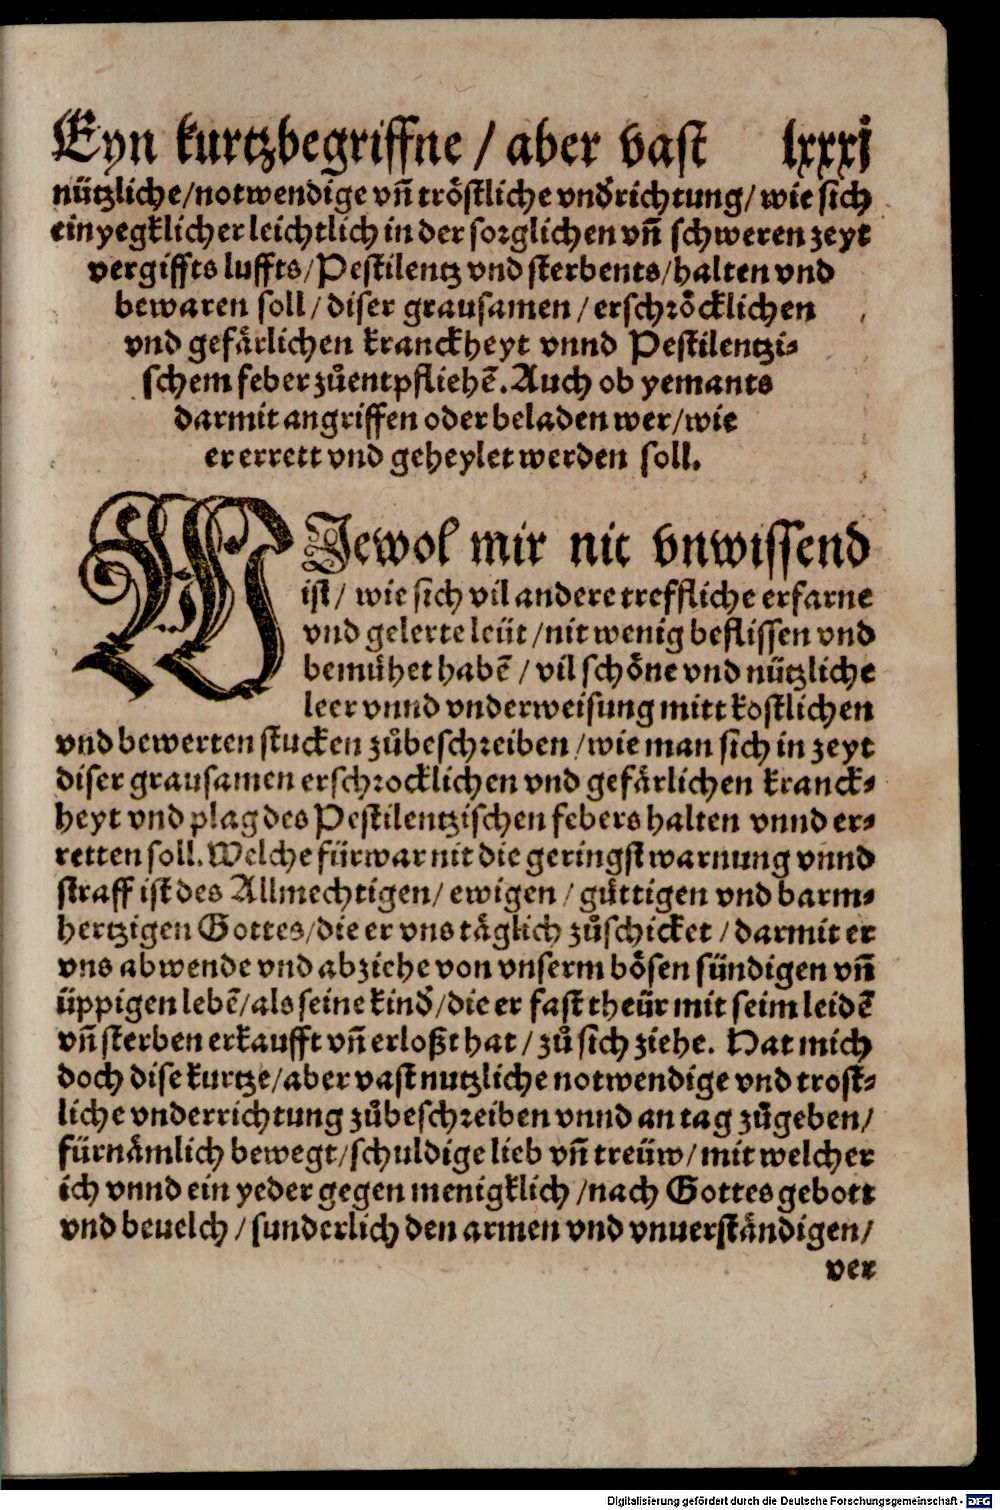 Eyn kurtzbegriffne / aber vast lxxxj
nützliche/notwendige vñ tröstliche vnďrichtung/ wie sich
ein yegklicher leichtlich in der sorglichen vñ schweren zeyt
vergiffts luffts/Pestilentz vnd sterbents/halten vnd
bewaren soll / diser grausamen / erschröcklichen
vnd gefärlichen kranckheyt vnnd Pestilentzi⸗
schem feber zůentpfliehẽ. Auch ob yemants
darmit angriffen oder beladen wer/wie
er errett vnd geheylet werden soll.
WJewol mir nit vnwissend
ist / wie sich vil andere treffliche erfarne
vnd gelerte leüt /nit wenig beflissen vnd
bemühet habẽ / vil schöne vnd nützliche
leer vnnd vnderweisung mitt kostlichen
vnd bewerten stucken zůbeschreiben /wie man sich in zeyt
diser grausamen erschrocklichen vnd gefärlichen kranck⸗
heyt vnd plag des Pestilentzischen febers halten vnnd er⸗
retten soll. Welche fürwar nit die geringst warnung vnnd
straff ist des Allmechtigen/ ewigen / güttigen vnd barm⸗
hertzigen Gottes/die er vns täglich zůschicket / darmit er
vns abwende vnd abziehe von vnserm bösen sündigen vñ
üppigen lebẽ/als seine kinď/die er fast theür mit seim leidẽ
vñ sterben erkaufft vñ erloßt hat / zů sich ziehe. Hat mich
doch dise kurtze/aber vast nutzliche notwendige vnd trost⸗
liche vnderrichtung zůbeschreiben vnnd an tag zůgeben/
fürnämlich bewegt/schuldige lieb vñ treüw/mit welcher
ich vnnd ein yeder gegen menigklich /nach Gottes gebott
vnd beuelch / sunderlich den armen vnd vnuerständigen/
ver
Digitalisierung gefördert durch die Deutsche Forschungsgemeinschaft - DFG